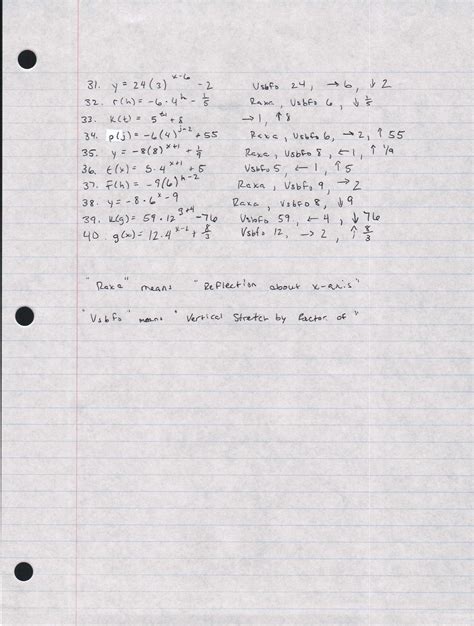 31. y = 24(3)^(x-6) - 2 Vsbfo 24, → 6, ↓ 2
32. r(h) = -6·4^h - 1/5 Raxa, Vsbfo 6, ↓ 1/5
33. k(t) = 5 + 8 → 1, ↑ 8
34. p(j) = -6(4)^(j-2) + 55 Raxa, Vsbfo 6, → 2, ↑ 55
35. y = -8(8)^(x+1) + 1/9 Raxa, Vsbfo 8, ← 1, ↑ 1/9
36. t(x) = 5·4^(x+1) + 5 Vsbfo 5, ← 1, ↑ 5
37. f(h) = -9(6)^(h-2) Raxa, Vsbfo 9, → 2
38. y = -8·6^x - 9 Raxa, Vsbfo 8, ↓ 9
39. k(g) = 59·12^(g+4) - 76 Vsbfo 59, ← 4, ↓ 76
40. g(x) = 12·4^(x-2) + 8/3 Vsbfo 12, → 2, ↑ 8/3
"Raxa" means "Reflection about x-axis"
"Vsbfo" means "Vertical Stretch by factor of"